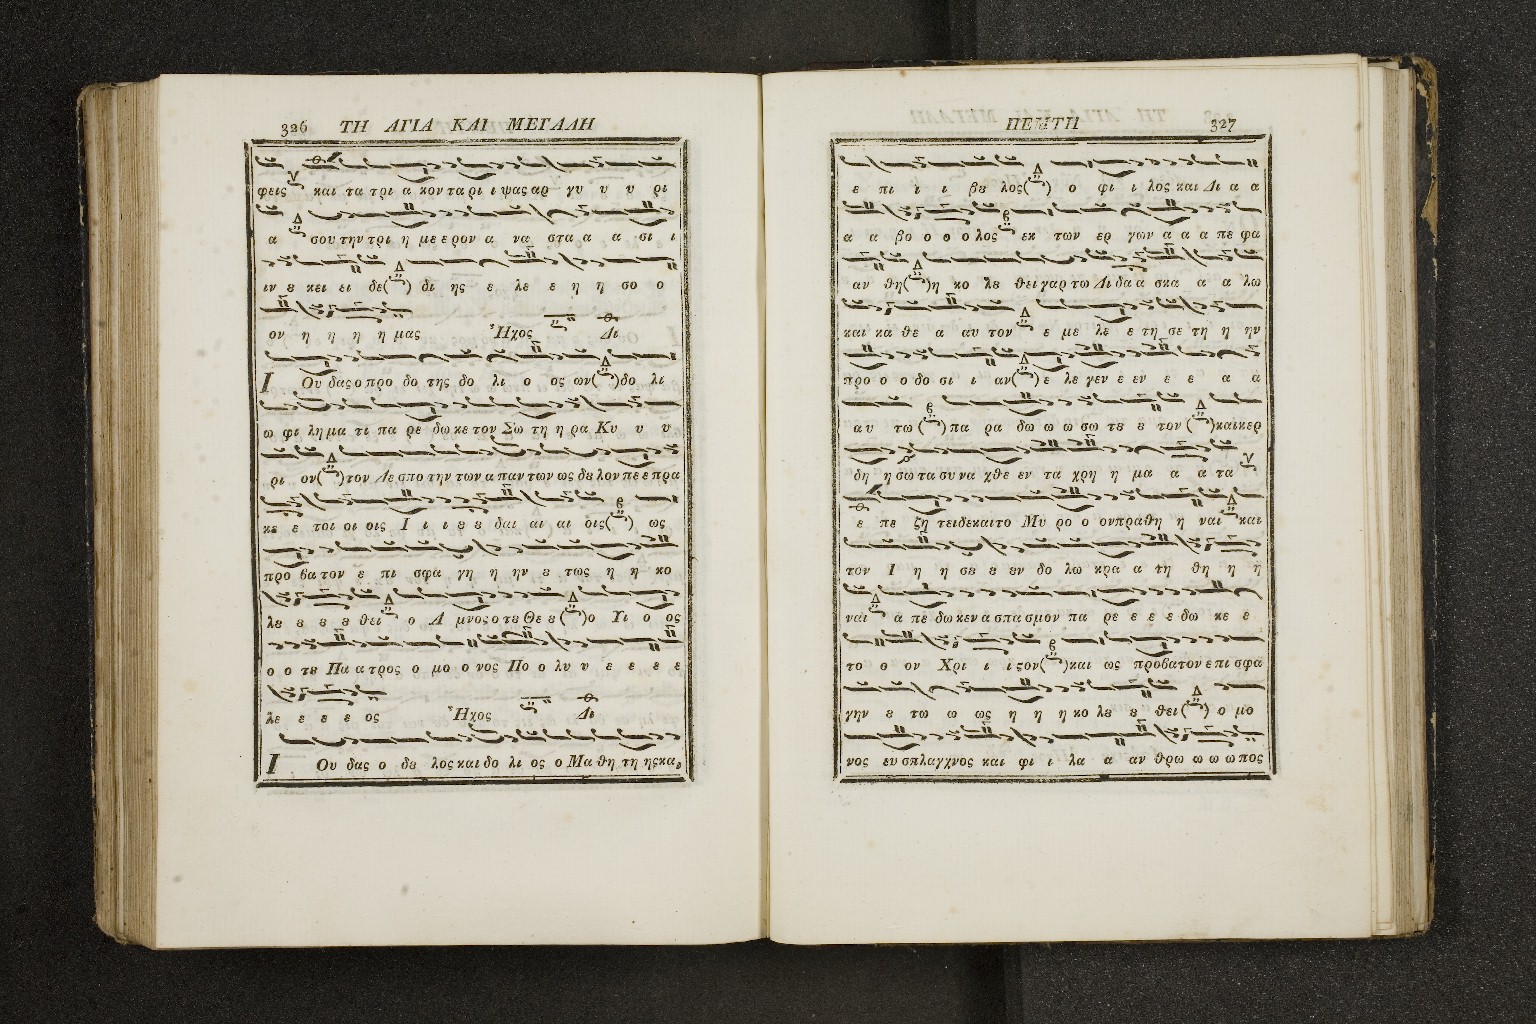 326 ΤΗ ΑΓΙΑ ΚΑΙ ΜΕΓΑΛΗ
φεις και τα τρι α κον τα ρι ι ψας αρ γυ υ υ ρι
α σου την τρι η με ε ρον α να στα α α σι ι
ιν ȣ κει ει δε( ) δι ης ε λε ε η η σο ο
ον η η η η μας Ἦχος Δι
Ι Ου δας ο προ δο της δο λι ο ος ων( )δο λι
ω φι λη μα τι πα ρε δω κε τον Σω τη η ρα Κυ υ υ
ρι ον( )τον Δε σπο την των α παν των ως δȣ λον πε ε πρα
κε ε τοι οι οις Ι ι ι ȣ ȣ δαι αι αι οις( ) ως
προ βα τον ε πι σφα γη η ην ȣ τως η η κο
λȣ ȣ ȣ ȣ θει ο Α μνος ο τȣ Θε ȣ( )ο Υι ο ος
ο ο τȣ Πα α τρος ο μο ο νος Πο ο λυ υ ε ε ε ε
λε ε ε ε ε ος Ἦχος Δι
Ι Ου δας ο δȣ λος και δο λι ος ο Μα θη τη ης κα
ΠΕΜΠΤΗ 327
ε πι ι ι βȣ λος( ) ο φι ι λος και Δι α α
α α βο ο ο ο λος εκ των ερ γων α α α πε φα
αν θη( )η κο λȣ θει γαρ τω Δι δα α σκα α α λω
και κα θε α αυ τον ε με λε ε τη σε τη η ην
προ ο ο δο σι ι αν( ) ε λε γεν ε εν ε ε α α
αυ τω ( )πα ρα δω ω ω σω τȣ ȣ τον ( )και κερ
δη η σω τα συ να χθε εν τα χρη η μα α α τα
ε πε ζη τει δε και το Μυ ρο ο ον πρα θη η ναι και
τον Ι η η σȣ ȣ εν δο λω κρα α τη θη η η
ναι α πε δω κεν α σπα σμον πα ρε ε ε ε δω κε ε
το ο ον Χρι ι ι ϛον( )και ως προβατον επι σφα
γην ȣ τω ω ως η η η κο λȣ ȣ θει( ) ο μο
νος ευ σπλαγχνος και φι ι λα α αν θρω ω ω ω πος